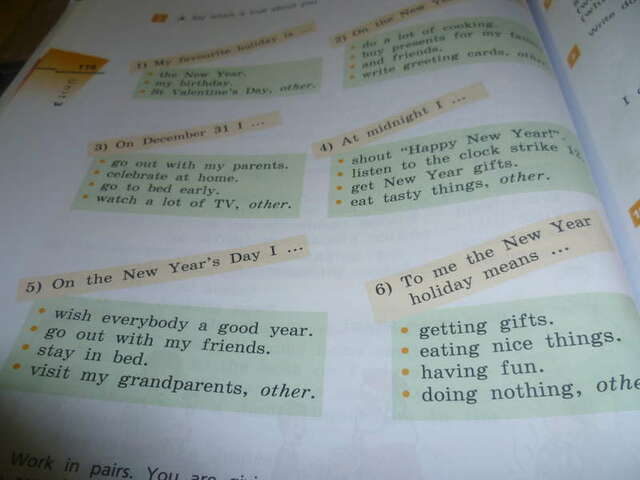 1) My favourite holiday is ...
the New Year.
my birthday.
St Valentine's Day, other.
2) On the New
do a lot of cooking.
buy presents for my
and friends.
write greeting cards,
116
Unit 3
3) On December 31 I ...
go out with my parents.
celebrate at home.
go to bed early.
watch a lot of TV, other.
4) At midnight I ...
shout "Happy New Year!".
listen to the clock strike 12.
get New Year gifts.
eat tasty things, other.
5) On the New Year's Day I ...
wish everybody a good year.
go out with my friends.
stay in bed.
visit my grandparents, other.
6) To me the New Year
holiday means ...
getting gifts.
eating nice things.
having fun.
doing nothing, othe
Work in pairs. You are